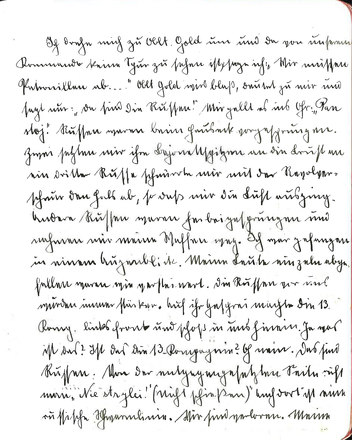 Ich drehe mich zu Oblt. Gold um und da von unserem
Kommando keine Spur zu sehen ist, sage ich: „Wir müssen
Patrouillen ab...." Oblt Gold wird blaß, deutet zu mir und
sagt nur: „da sind die Russen!" Mir gellt es ins Ohr: „
stoj." Russen waren beim Hauseck vorgesprungen.
Zwei setzten mir ihre Bajonettspitzen an die Brust an
ein dritter Russe schnürte mir mit der Revolver-
schnur den Hals ab, so daß mir die Luft ausging.
Andere Russen waren herbeigesprungen und
nahmen mir meine Waffen weg. Ich war gefangen
in einem Augenblick. Meine Leute einzeln abge-
fallen waren wie versteinert. Die Russen vor uns
wurden immer stärker. Auf ihr Geschrei machte die 13.
Komp. links front und schoß in uns hinein. Ja was
ist das? Ist das die 13. Kompagnie? O nein. Das sind
Russen. Von der entgegengesetzten Seite ruft
man, „Nie streljei!" (Nicht schießen) auch dort ist eine
russische Schwarmlinie. Wir sind verloren. Meine